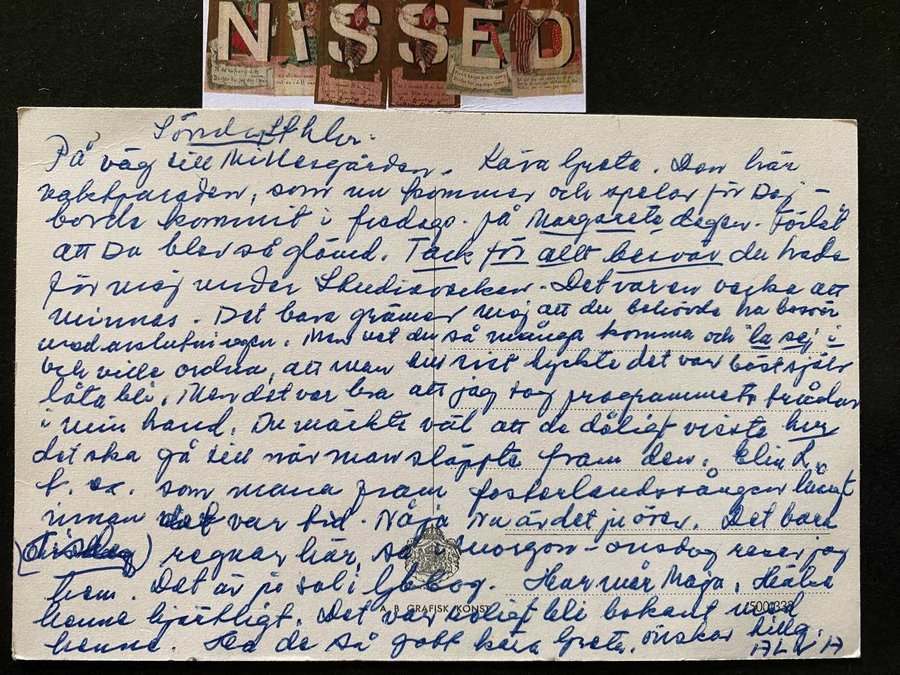 NISSED
På väg till Millesgården. Kära Greta. Den här
som nu kommer och spelar för Dej –
borde kommit i fredags på Margareta dagen. Förlåt
att Du blev så glömd. Tack för allt besvär du hade
för mej under Studieveckan. Det var en vecka att
minnas. Det bara grämer mej att du behövde ha besvär
med avslutningen. Men vet du så många komma och la sej i
och ville ordna, att man till sist tyckte det var bäst själv
låta bli. Men det var bra att jag tog programmets trådar
i min hand. Du märkte väl att de dåligt visste hur
det ska gå till när man släppte fram dem. Elin L.
t. ex. som mana fram fosterlandssången långt
innan det var tid. Nåja Nu är det ju över. Det bara
regnar här, så i morgon – onsdag reser jag
hem. Det är ju sol i Gbg. Hur mår Maja, Hälsa
A. B. GRAFISK KONST
henne hjärtligt. Det var roligt bli bekant med
henne. Ha de så gott kära Greta, önskar